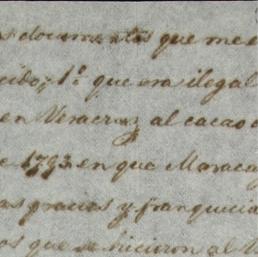 documentos que me
cido; 1.º que era ilegal
en Veracruz al cacao
1793 en que Maracay
gracias y franquicia
que se hicieron al